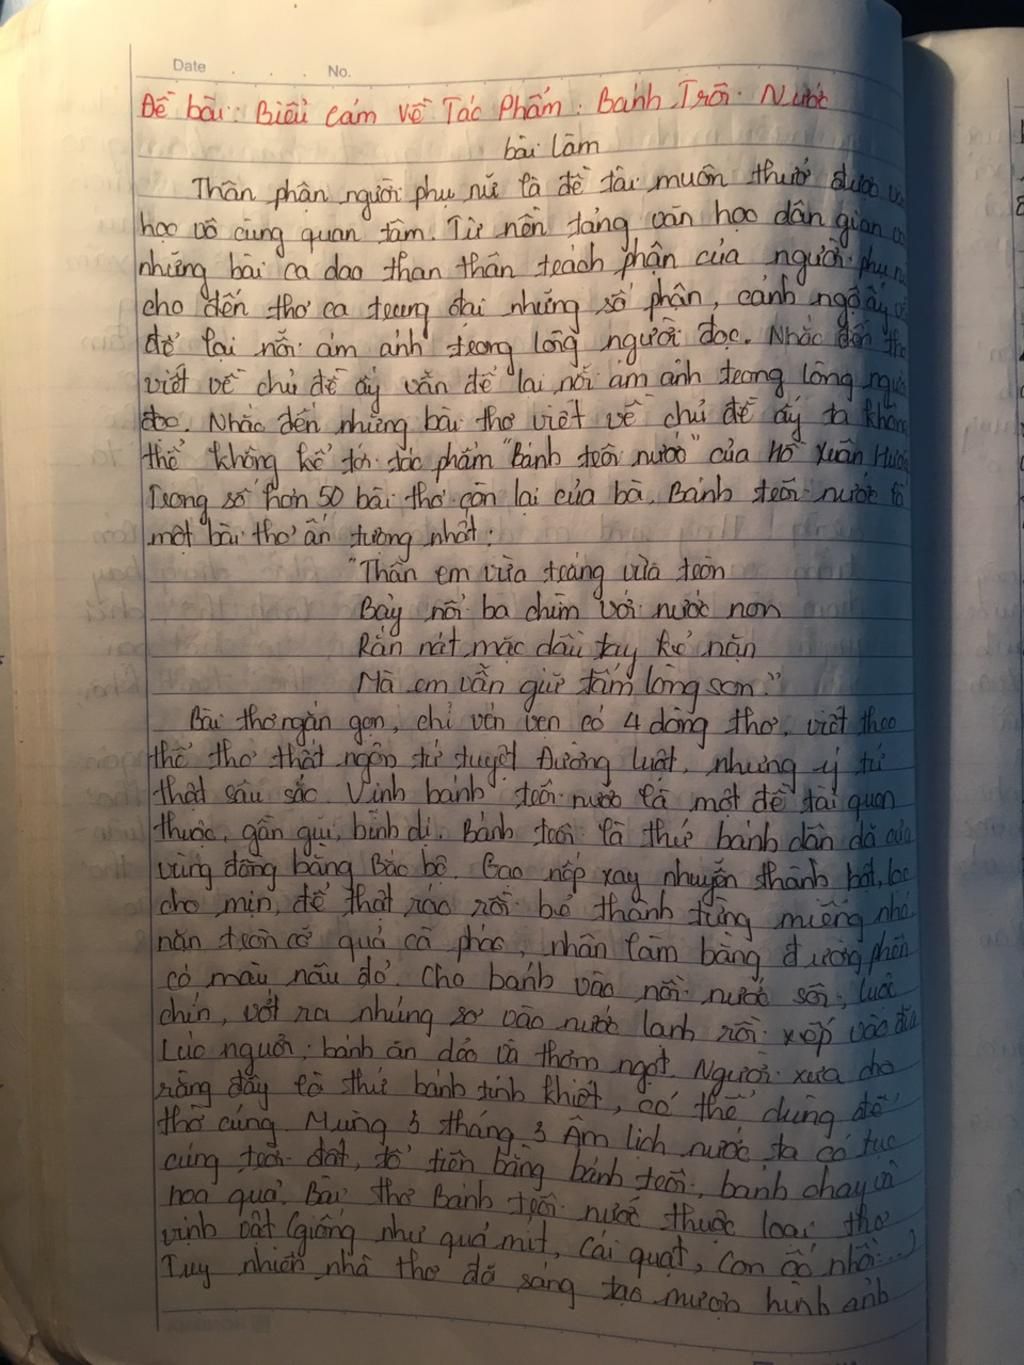 Date . . . No.
Đề bài: Biểu cảm về Tác Phẩm: Bánh Trôi Nước
bài làm
Thân phận người phụ nữ là đề tài muôn thuở được
học vô cùng quan tâm. Từ nền tảng văn học dân gian
những bài ca dao than thân trách phận của người phụ
cho đến thơ ca trung đại những số phận, cảnh ngộ ấy
để lại nỗi ám ảnh trong lòng người đọc. Nhắc đến
viết về chủ đề ấy vẫn để lại nỗi ám ảnh trong lòng
đọc. Nhắc đến những bài thơ viết về chủ đề ấy ta không
thể không kể tới tác phẩm "Bánh trôi nước" của Hồ Xuân Hương
Trong số hơn 50 bài thơ còn lại của bà. Bánh trôi nước là
một bài thơ ấn tượng nhất:
"Thân em vừa trắng vừa tròn
Bảy nổi ba chìm với nước non
Rắn nát mặc dầu tay kẻ nặn
Mà em vẫn giữ tấm lòng son."
Bài thơ ngắn gọn, chỉ vẻn vẹn có 4 dòng thơ, viết theo
thể thơ thất ngôn tứ tuyệt Đường luật, nhưng ý tứ
thật sâu sắc. Vịnh bánh trôi nước là một đề tài quen
thuộc, gần gũi, bình dị. Bánh trôi là thứ bánh dân dã của
vùng đồng bằng Bắc bộ. Gạo nếp xay nhuyễn thành bột, lọc
cho mịn, để thật ráo rồi bẻ thành từng miếng nhỏ,
nặn tròn cỡ quả cà pháo, nhân làm bằng đường phên
có màu nâu đỏ. Cho bánh vào nồi nước sôi, luộc
chín, vớt ra nhúng sơ vào nước lạnh rồi xếp vào đĩa
Lúc nguội, bánh ăn dẻo và thơm ngọt. Người xưa cho
rằng đây là thứ bánh tinh khiết, có thể dùng để
thờ cúng. Mùng 3 tháng 3 Âm lịch nước ta có tục
cúng trời đất, tổ tiên bằng bánh trôi, bánh chay và
hoa quả. Bài thơ Bánh trôi nước thuộc loại thơ
vịnh vật (giống như quả mít, cái quạt, con ốc nhồi...)
Tuy nhiên nhà thơ đã sáng tạo mượn hình ảnh